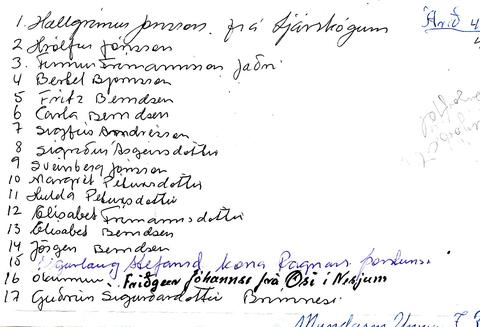 1. Hallgrímur Jónsson frá Skárskógum
Árið 4
2 Hrólfur Jónsson
3. Finnur Finnannsson Jaðri
4 Bertel Bjornsson
5 Fritz Berndsen
6 Carla Berndsen
7 Sigfús Andrésson
8 Sigríður Asgeirsdottir
9 Sveinberg Jonsson
10 Margrét Pétursdottir
11 Hulda Pétursdottir
12 Elísabet Finnannsdottir
13 Elisabet Berndsen
14 Jörgen Berndsen
15 Sigurlaug Stefansd kona Ragnars
16 Friðgeir Jóhannss frá Ósi í Nesjum
17 Guðrún Sigurðardottir Brunnesi